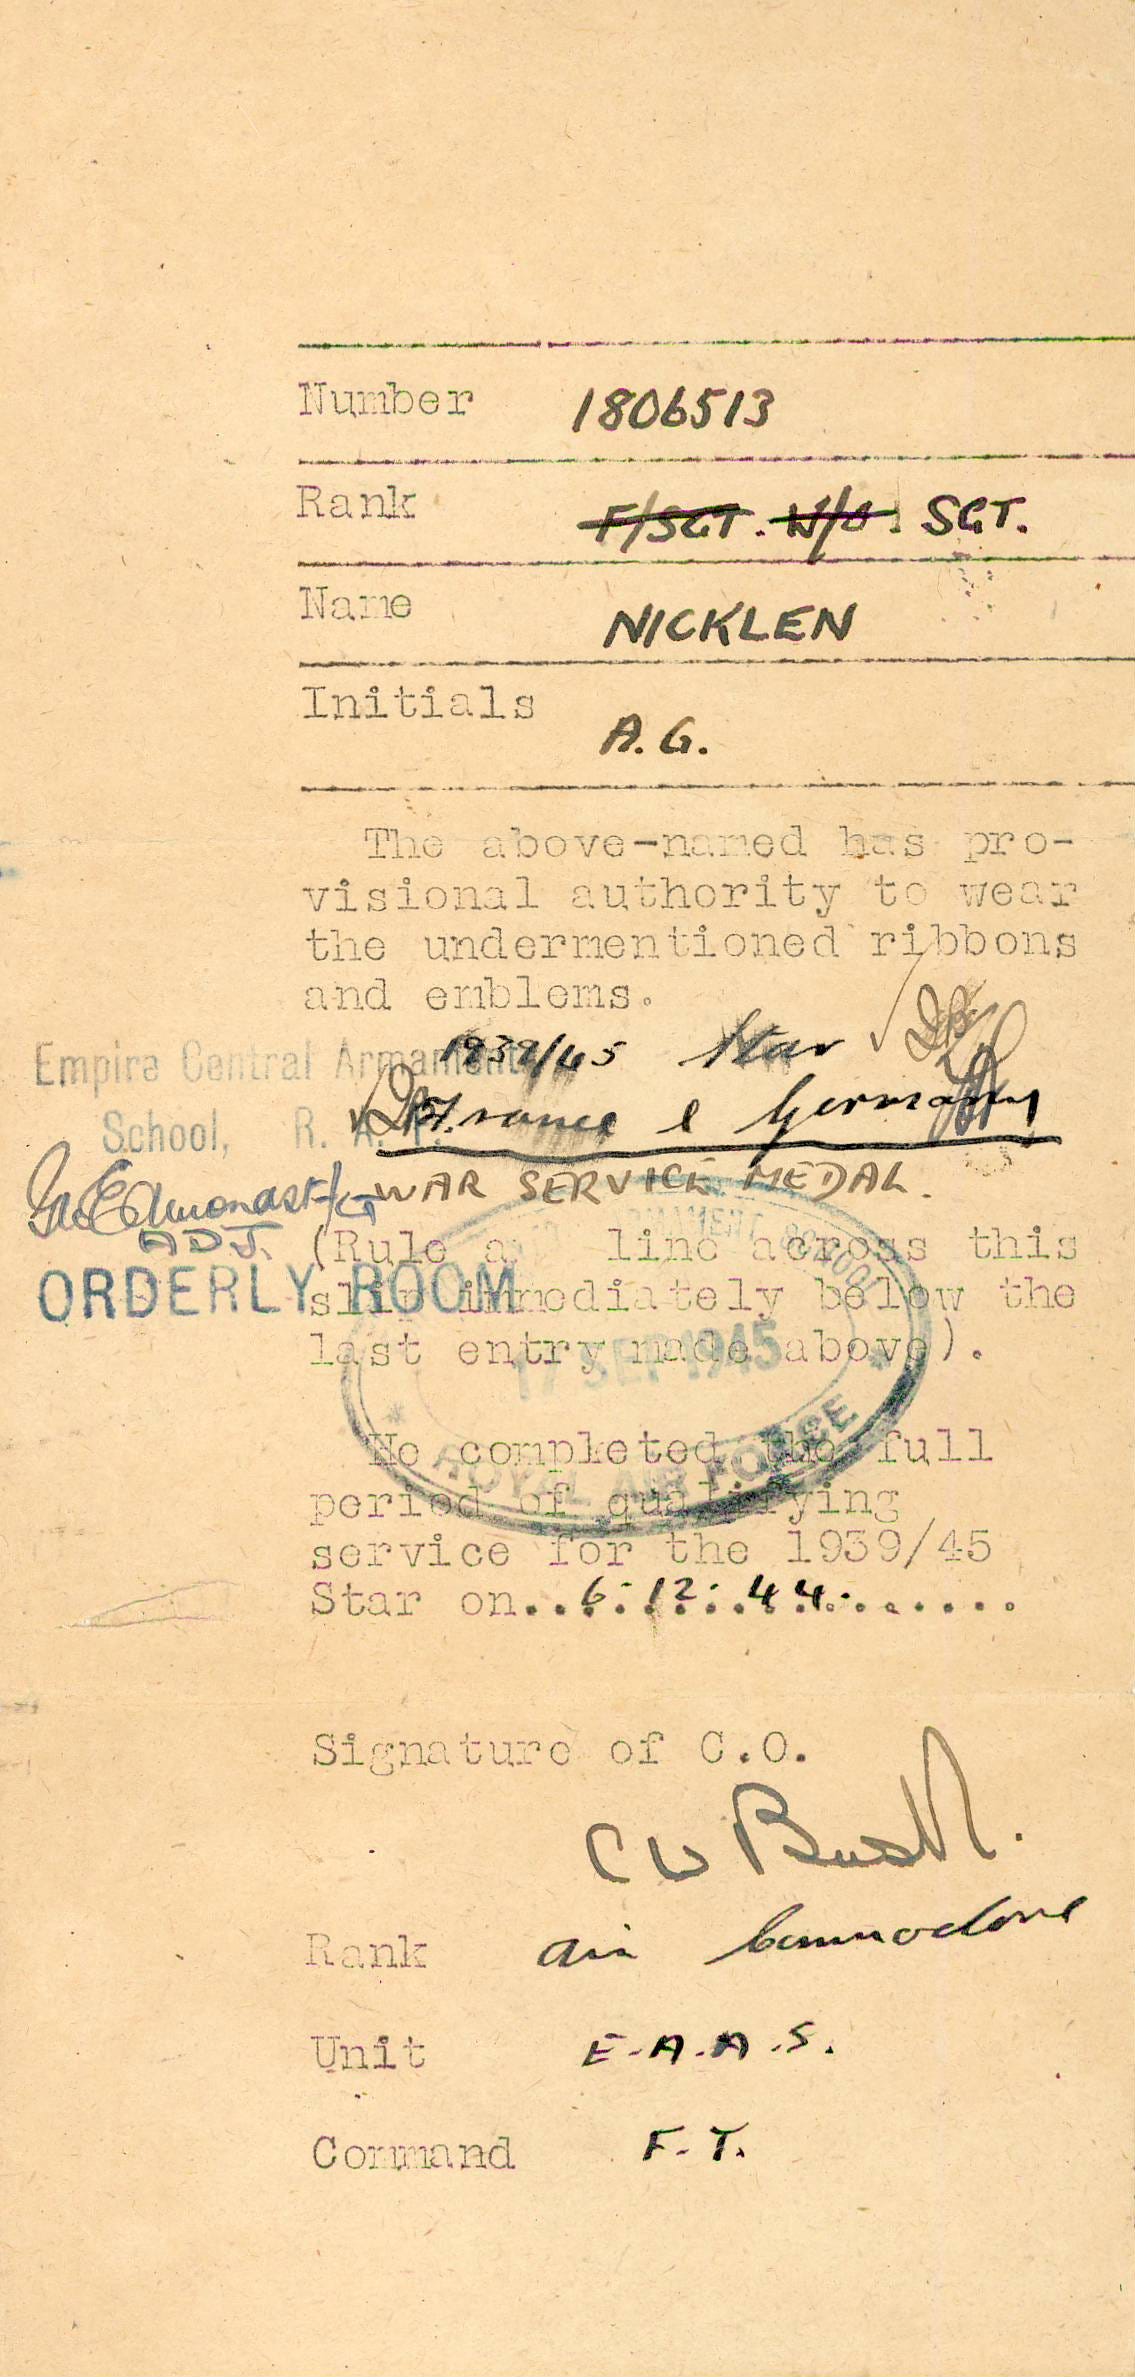 Number 1806513
Rank F/SGT. W/O. SGT.
Name NICKLEN
Initials A.G.
The above-named has pro-
visional authority to wear
the undermentioned ribbons
and emblems.
1939/45 Star
France & Germany
WAR SERVICE MEDAL.
Empire Central Armament
School, R.A.F.
ADJ.
ORDERLY ROOM
(Rule a line across this
slip immediately below the
last entry made above).
ARMAMENT SCHOOL
17 SEP 1945
ROYAL AIR FORCE
He completed the full
period of qualifying
service for the 1939/45
Star on..6.12.44.........
Signature of C.O.
Rank Air Commodore
Unit E.A.A.S.
Command F.T.